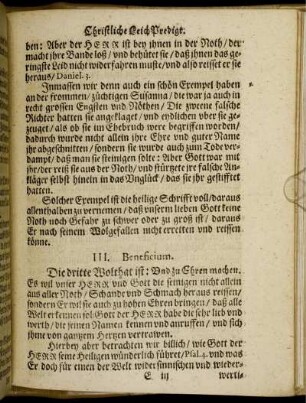 Christliche Leich Predigt.
ben: Aber der HERR ist bey jhnen in der Noth/ der
macht jhre Bande loß/ vnd behütet sie/ daß jhnen das ge-
ringste Leid nicht widerfahren muste/ vnd also reisset er sie
heraus/ Daniel. 3.
Inmassen wir denn auch ein schön Exempel haben
an der frommen/ züchtigen Susanna/ die war ja auch in
recht grossen Engsten vnd Nöthen/ Die zweene falsche
Richter hatten sie angeklaget/ vnd eydlichen vber sie ge-
zeuget/ als ob sie im Ehebruch were begriffen worden/
dadurch wurde nicht allein jhre Ehre vnd guter Name
jhr abgeschnitten/ sondern sie wurde auch zum Tode ver-
dampt/ daß man sie steinigen solte: Aber Gott war mit
jhr/ der reiß sie aus der Noth/ vnd stürtzete jre falsche An-
kläger selbst hinein in das Vnglück/ das sie jhr gestifftet
hatten.
Solcher Exempel ist die heilige Schrifft voll/ daraus
allenthalben zu vernemen/ daß vnserm lieben Gott keine
Noth noch Gefahr zu schwer oder zu groß ist/ daraus
Er nach seinem Wolgefallen nicht erretten vnd reissen
könne.
III. Beneficium.
Die dritte Wolthat ist: Vnd zu Ehren machen.
Es wil vnser HERR vnd Gott die seinigen nicht allein
aus aller Noth/ Schande vnd Schmach heraus reissen/
sondern Er wil sie auch zu hohen Ehren bringen/ daß alle
Welt erkennen sol: Gott der HERR habe die sehr lieb vnd
werth/ die jenen Namen kennen vnd anruffen/ vnd sich
jhme von gantzem Hertzen vertrawen.
Hierbey aber betrachten wir billich/ wie Gott der
HERR seine Heiligen wünderlich führet/ Psal. 4. vnd was
Er doch für einen der Welt widersinnischen vnd wieder-
E iij werti-